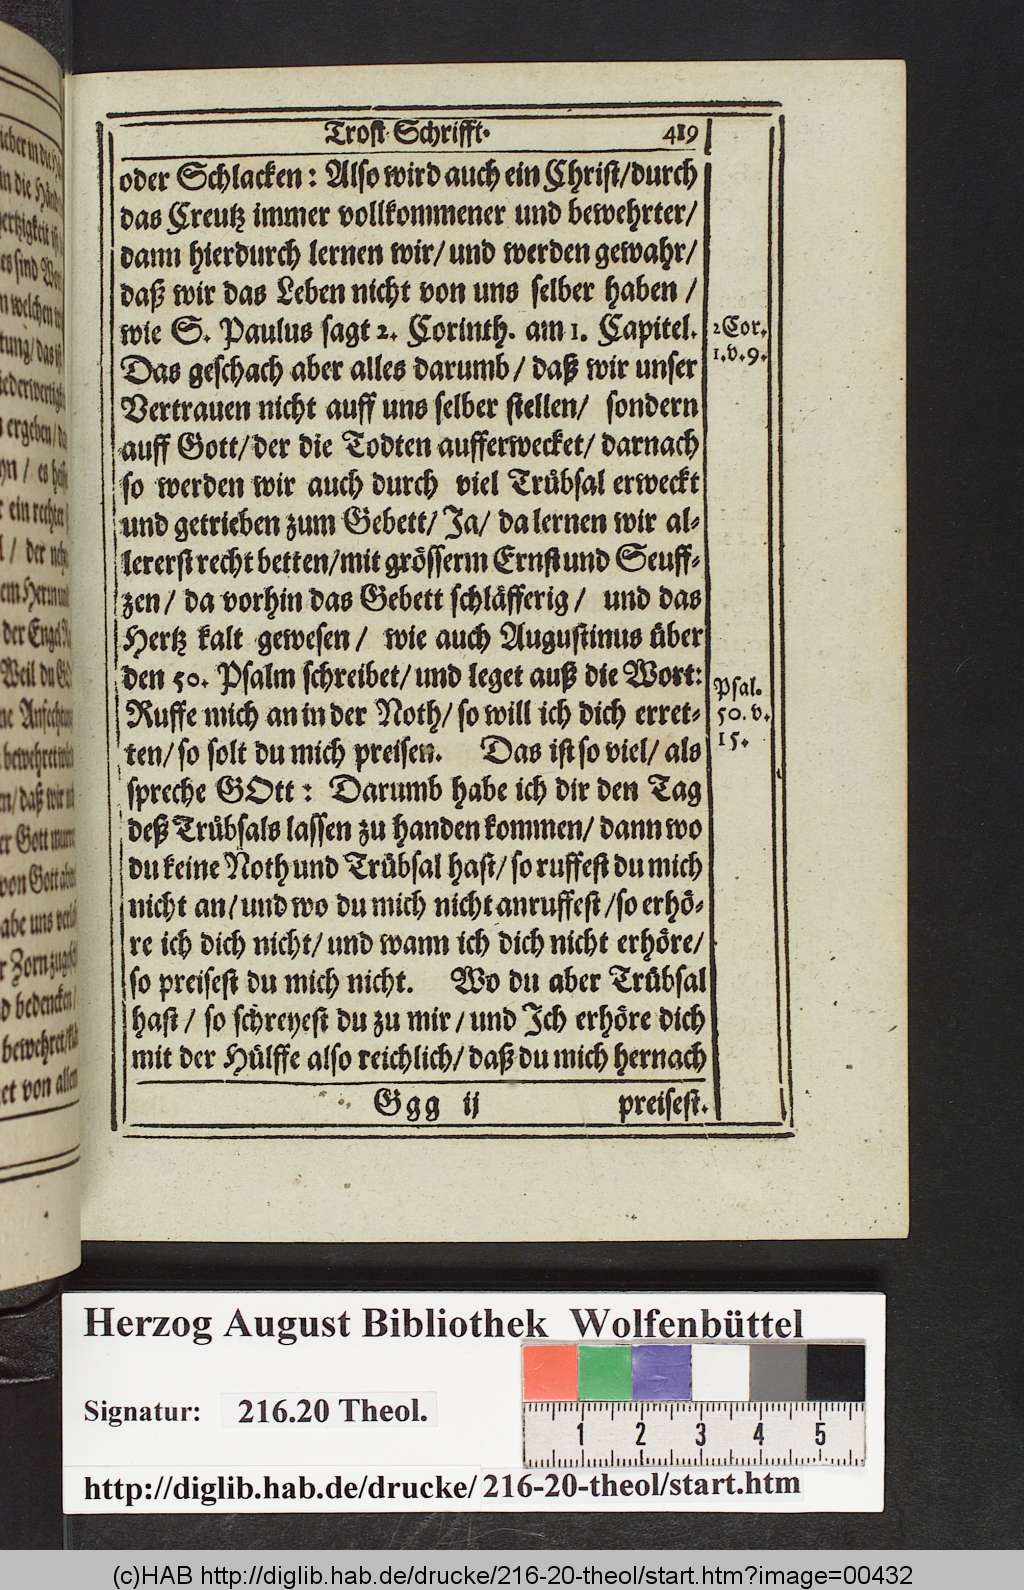 Trost Schrifft. 419
oder Schlacken: Also wird auch ein Christ/durch
das Creutz immer vollkommener und bewehrter/
dann hierdurch lernen wir/ und werden gewahr/
daß wir das Leben nicht von uns selber haben /
wie S. Paulus sagt 2. Corinth. am 1. Capitel.
2 Cor.
1. v. 9.
Das geschach aber alles darumb/ daß wir unser
Vertrauen nicht auff uns selber stellen/ sondern
auff Gott/ der die Todten aufferwecket/ darnach
so werden wir auch durch viel Trübsal erweckt
und getrieben zum Gebett/ Ja/ da lernen wir al-
lererst recht betten/mit grösserm Ernst und Seuff-
zen/ da vorhin das Gebett schläfferig/ und das
Hertz kalt gewesen/ wie auch Augustinus über
den 50. Psalm schreibet/ und leget auß die Wort:
Psal.
50. v.
15.
Ruffe mich an in der Noth/ so will ich dich erret-
ten/ so solt du mich preisen. Das ist so viel/ als
spreche GOtt: Darumb habe ich dir den Tag
deß Trübsals lassen zu handen kommen/ dann wo
du keine Noth und Trübsal hast/ so ruffest du mich
nicht an/ und wo du mich nicht anruffest/so erhö-
re ich dich nicht/ und wann ich dich nicht erhöre/
so preisest du mich nicht. Wo du aber Trübsal
hast/ so schreyest du zu mir/ und Ich erhöre dich
mit der Hülffe also reichlich/ daß du mich hernach
Ggg ij preisest.
Herzog August Bibliothek Wolfenbüttel
Signatur: 216.20 Theol.
1 2 3 4 5
http://diglib.hab.de/drucke/216-20-theol/start.htm
(c)HAB http://diglib.hab.de/drucke/216-20-theol/start.htm?image=00432